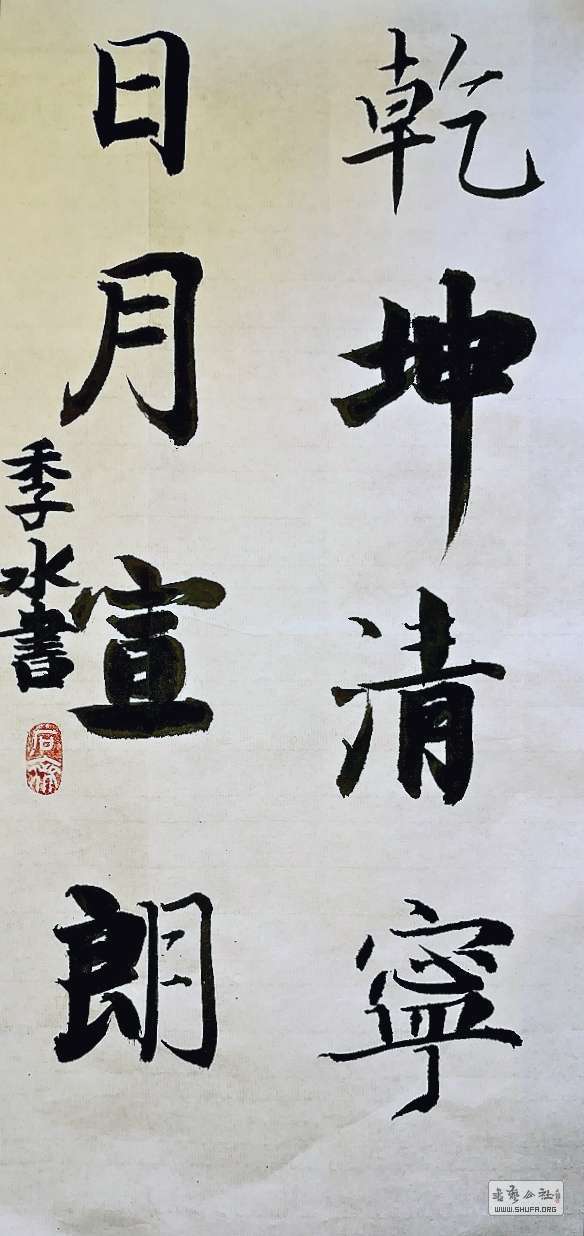 乾坤清寧
日月宣朗
季水書
書藝公社
WWW.SHUFA.ORG